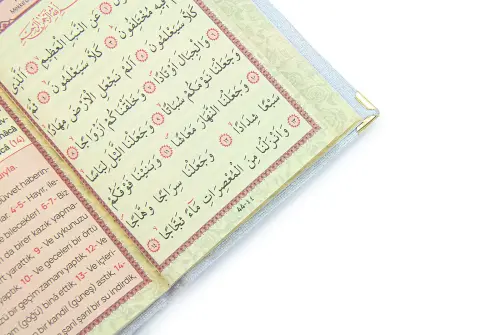 عَنِ النَّبَإِ الْعَظِيمِ ﴿٢﴾ الَّذِي
فِيهِ مُخْتَلِفُونَ ﴿٣﴾ كَلَّا سَيَعْلَمُونَ ﴿٤﴾ ثُمَّ
كَلَّا سَيَعْلَمُونَ ﴿٥﴾ أَلَمْ نَجْعَلِ الْأَرْضَ مِهَادًا ﴿٦﴾
وَالْجِبَالَ أَوْتَادًا ﴿٧﴾ وَخَلَقْنَاكُمْ أَزْوَاجًا ﴿٨﴾
وَجَعَلْنَا نَوْمَكُمْ سُبَاتًا ﴿٩﴾ وَجَعَلْنَا اللَّيْلَ لِبَاسًا ﴿١٠﴾
وَجَعَلْنَا النَّهَارَ مَعَاشًا ﴿١١﴾ وَبَنَيْنَا فَوْقَكُمْ
سَبْعًا شِدَادًا ﴿١٢﴾ وَجَعَلْنَا سِرَاجًا وَهَّاجًا ﴿١٣﴾
وَأَنْزَلْنَا مِنَ الْمُعْصِرَاتِ مَاءً ثَجَّاجًا ﴿١٤﴾
(14)
üvvet haberin-
4-5- Hayır, ile-
bilecekler! 6-7- Biz
da birer kazık yapma-
yarattık. 9- Ve uykunuzu
10- Ve geceleri bir örtü
bir geçim zamanı yaptık. 12- Ve
(göğü) binâ ettik. 13- Ve içleri-
bir kandil (güneş) astık. 14-
şarıl şarıl bir su indirdik,